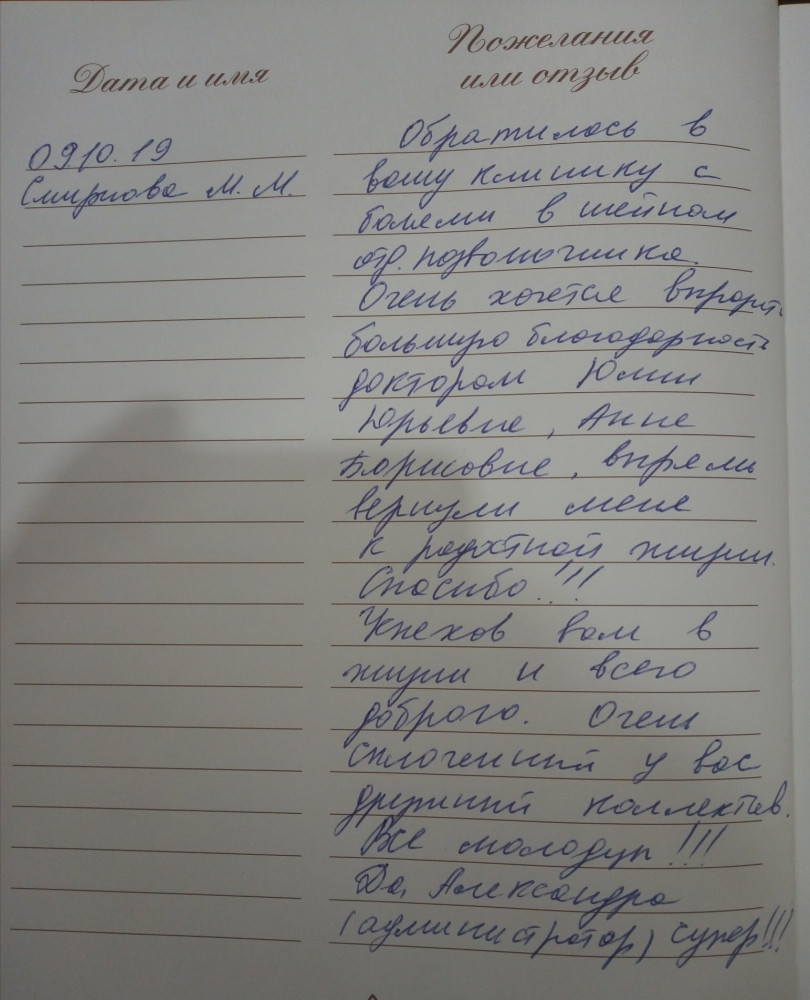 Дата и имя
Пожелания
или отзыв
0910.19
Смирнова М. М.
Обратилась в
вашу клинику с
болями в шейном
отд. позвоночника.
Очень хочется выразить
большую благодарность
докторам Юлии
Юрьевне, Анне
Борисовне, вы
вернули меня
к радостной жизни.
Спасибо!!!
Успехов вам в
жизни и всего
доброго. Очень
сплоченный у вас
дружный коллектив.
Все молодцы!!!
Да, Александра
(администратор) супер!!!